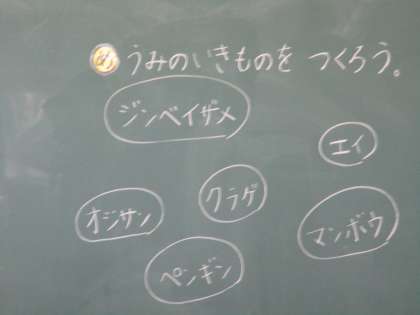 め うみのいきものを つくろう。
ジンベイザメ
エイ
クラゲ
オジサン
マンボウ
ペンギン